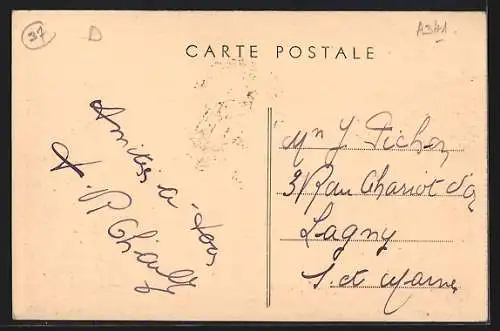 37
D
A341
CARTE POSTALE
Amitiés à tous
Mr J. Pichon
3 Rue Chariot d'or
Lagny
S. et Marne